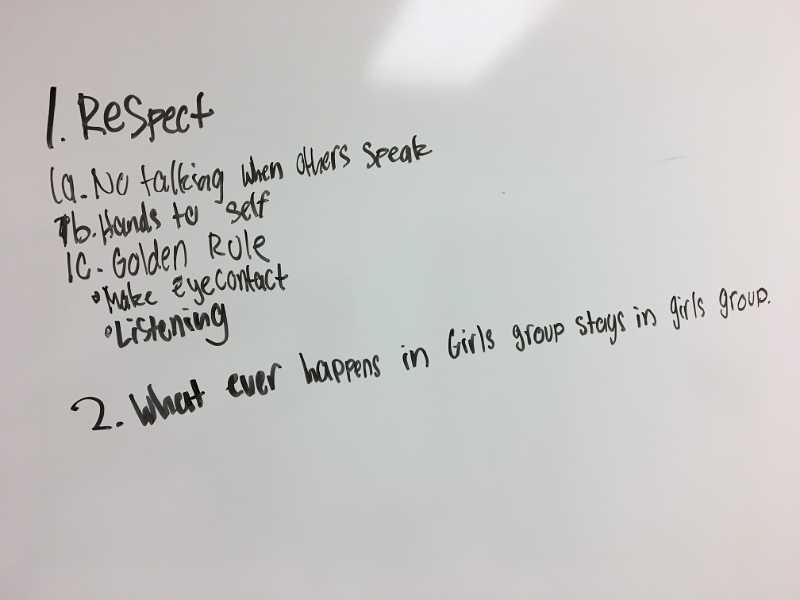 1. Respect
1a. No talking when others speak
1b. Hands to self
1c. Golden Rule
• Make eye contact
• Listening
2. What ever happens in Girls group stays in girls group.